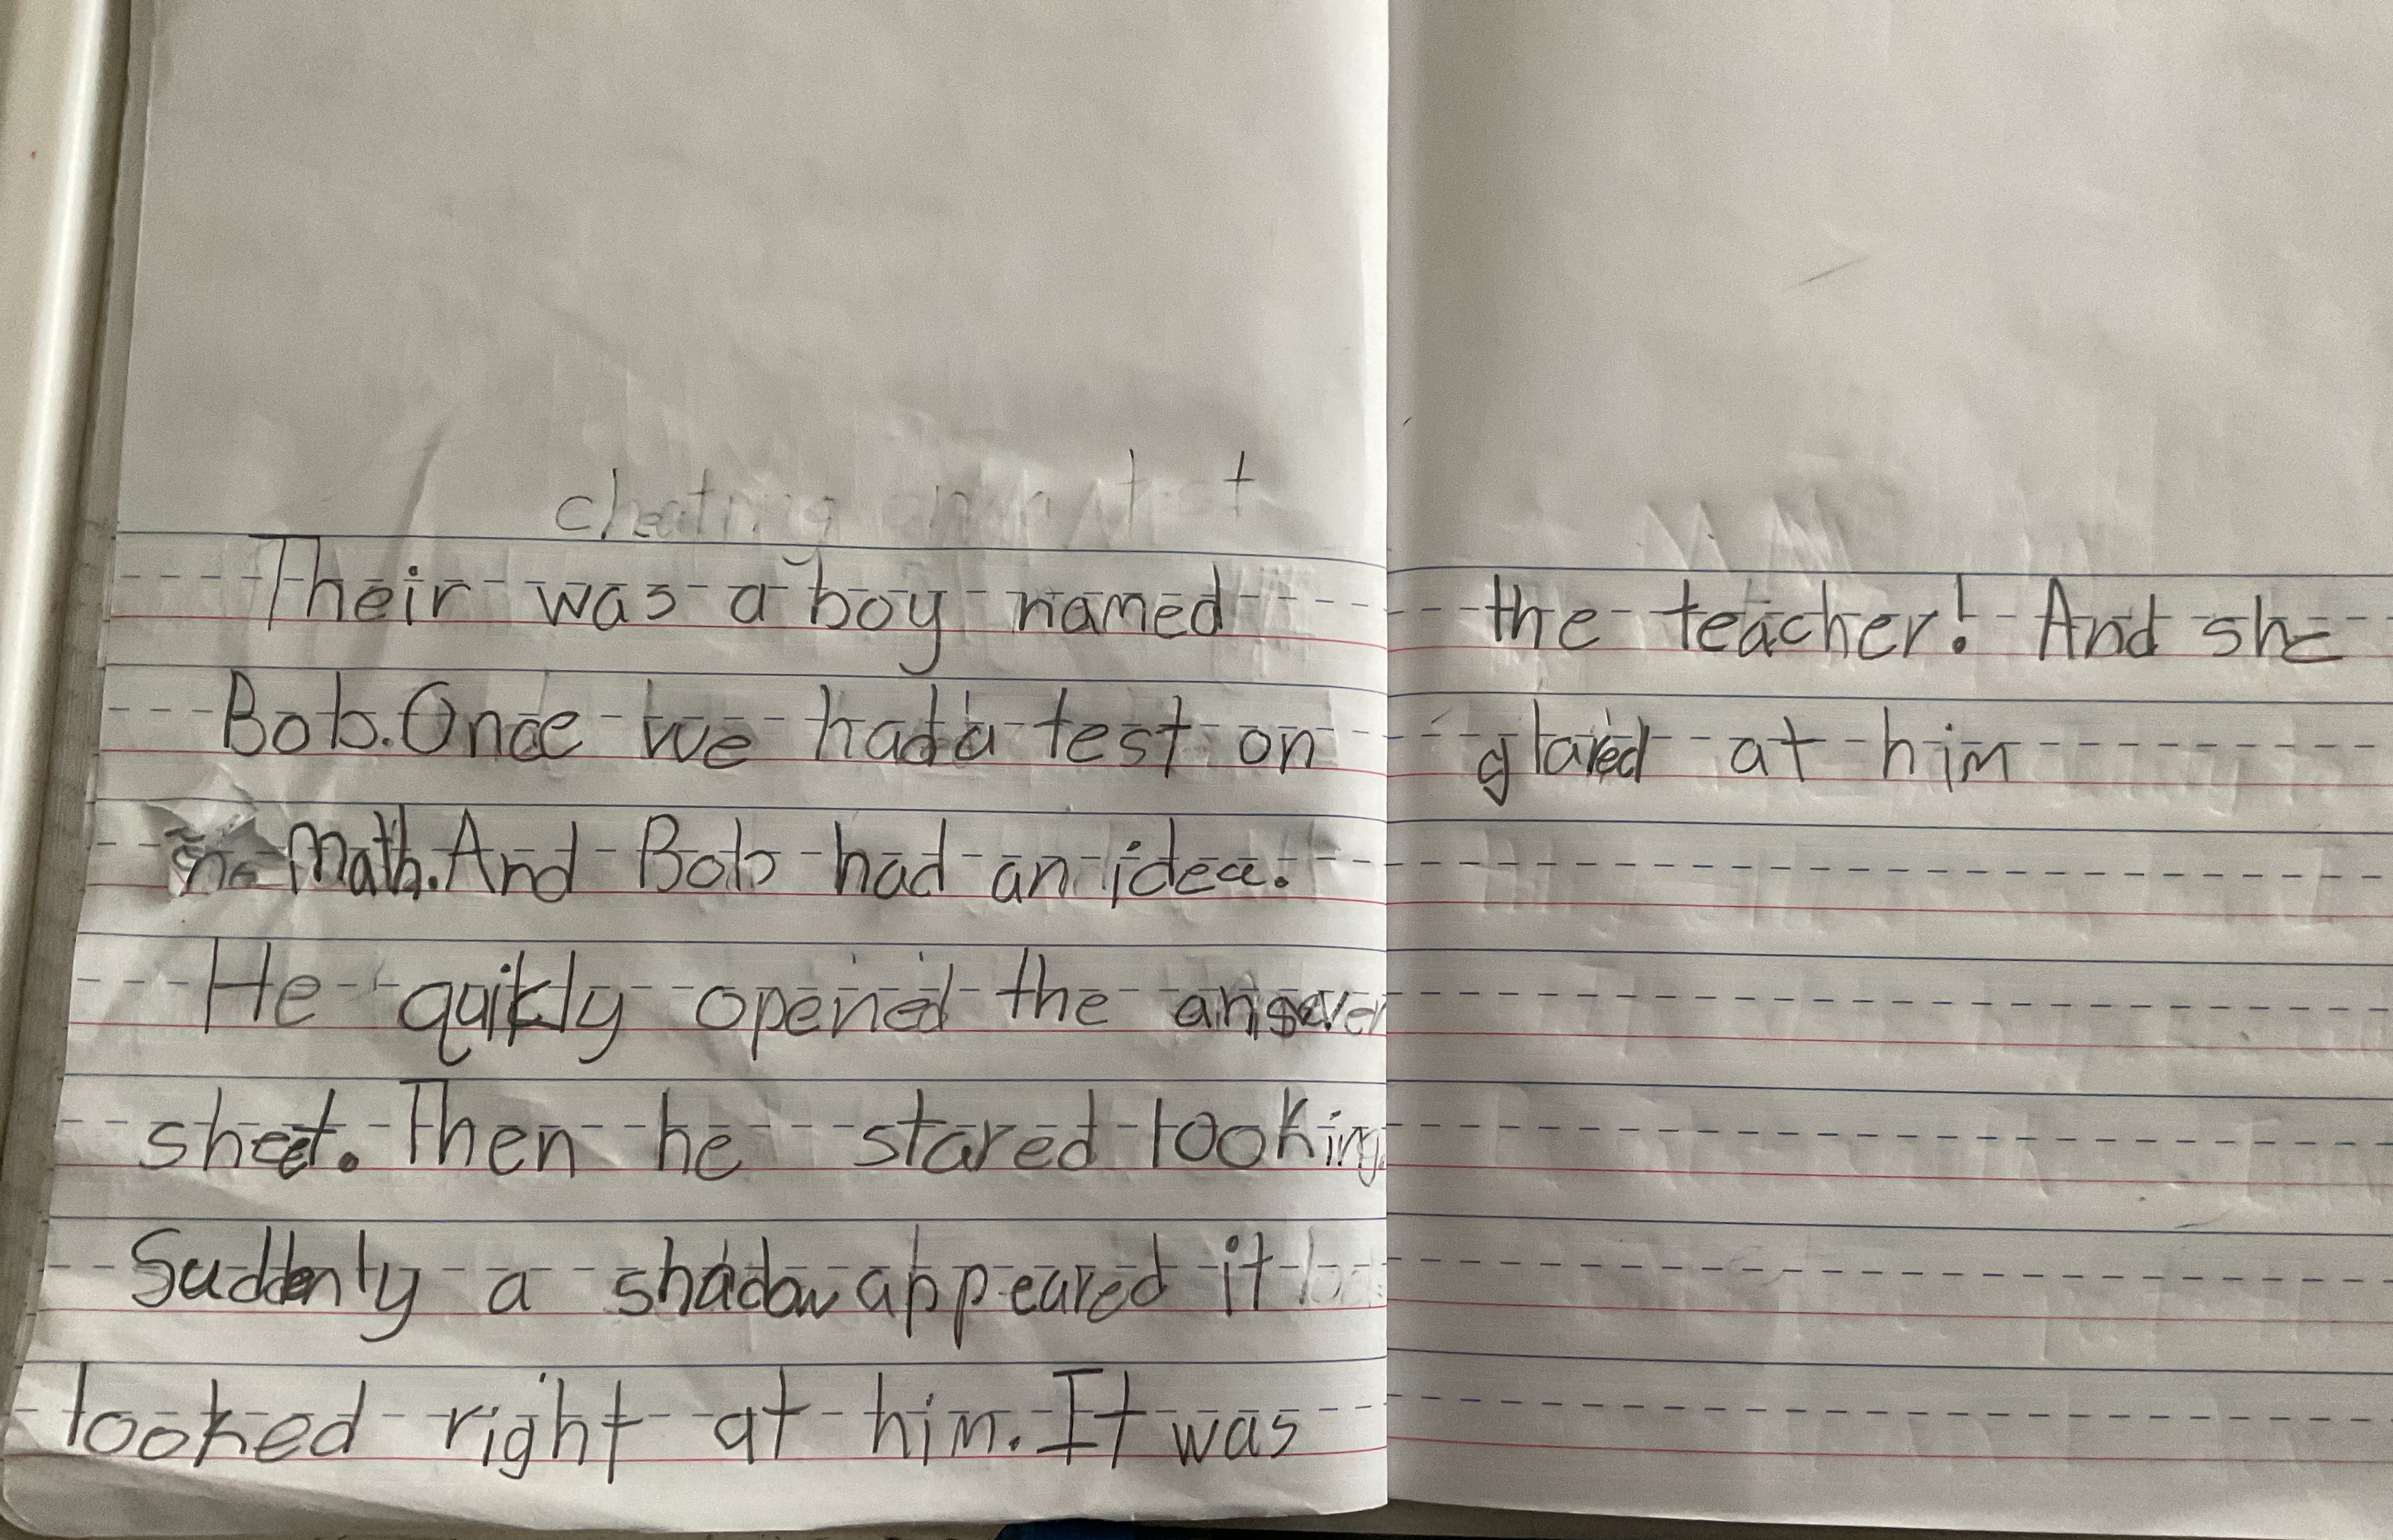 cheating on a test
Their was a boy named
Bob. Once we had a test on
Math. And Bob had an idea.
He quikly opened the answer
sheet. Then he stared looking
Suddenly a shadow appeared it
looked right at him. It was
the teacher! And she
glared at him